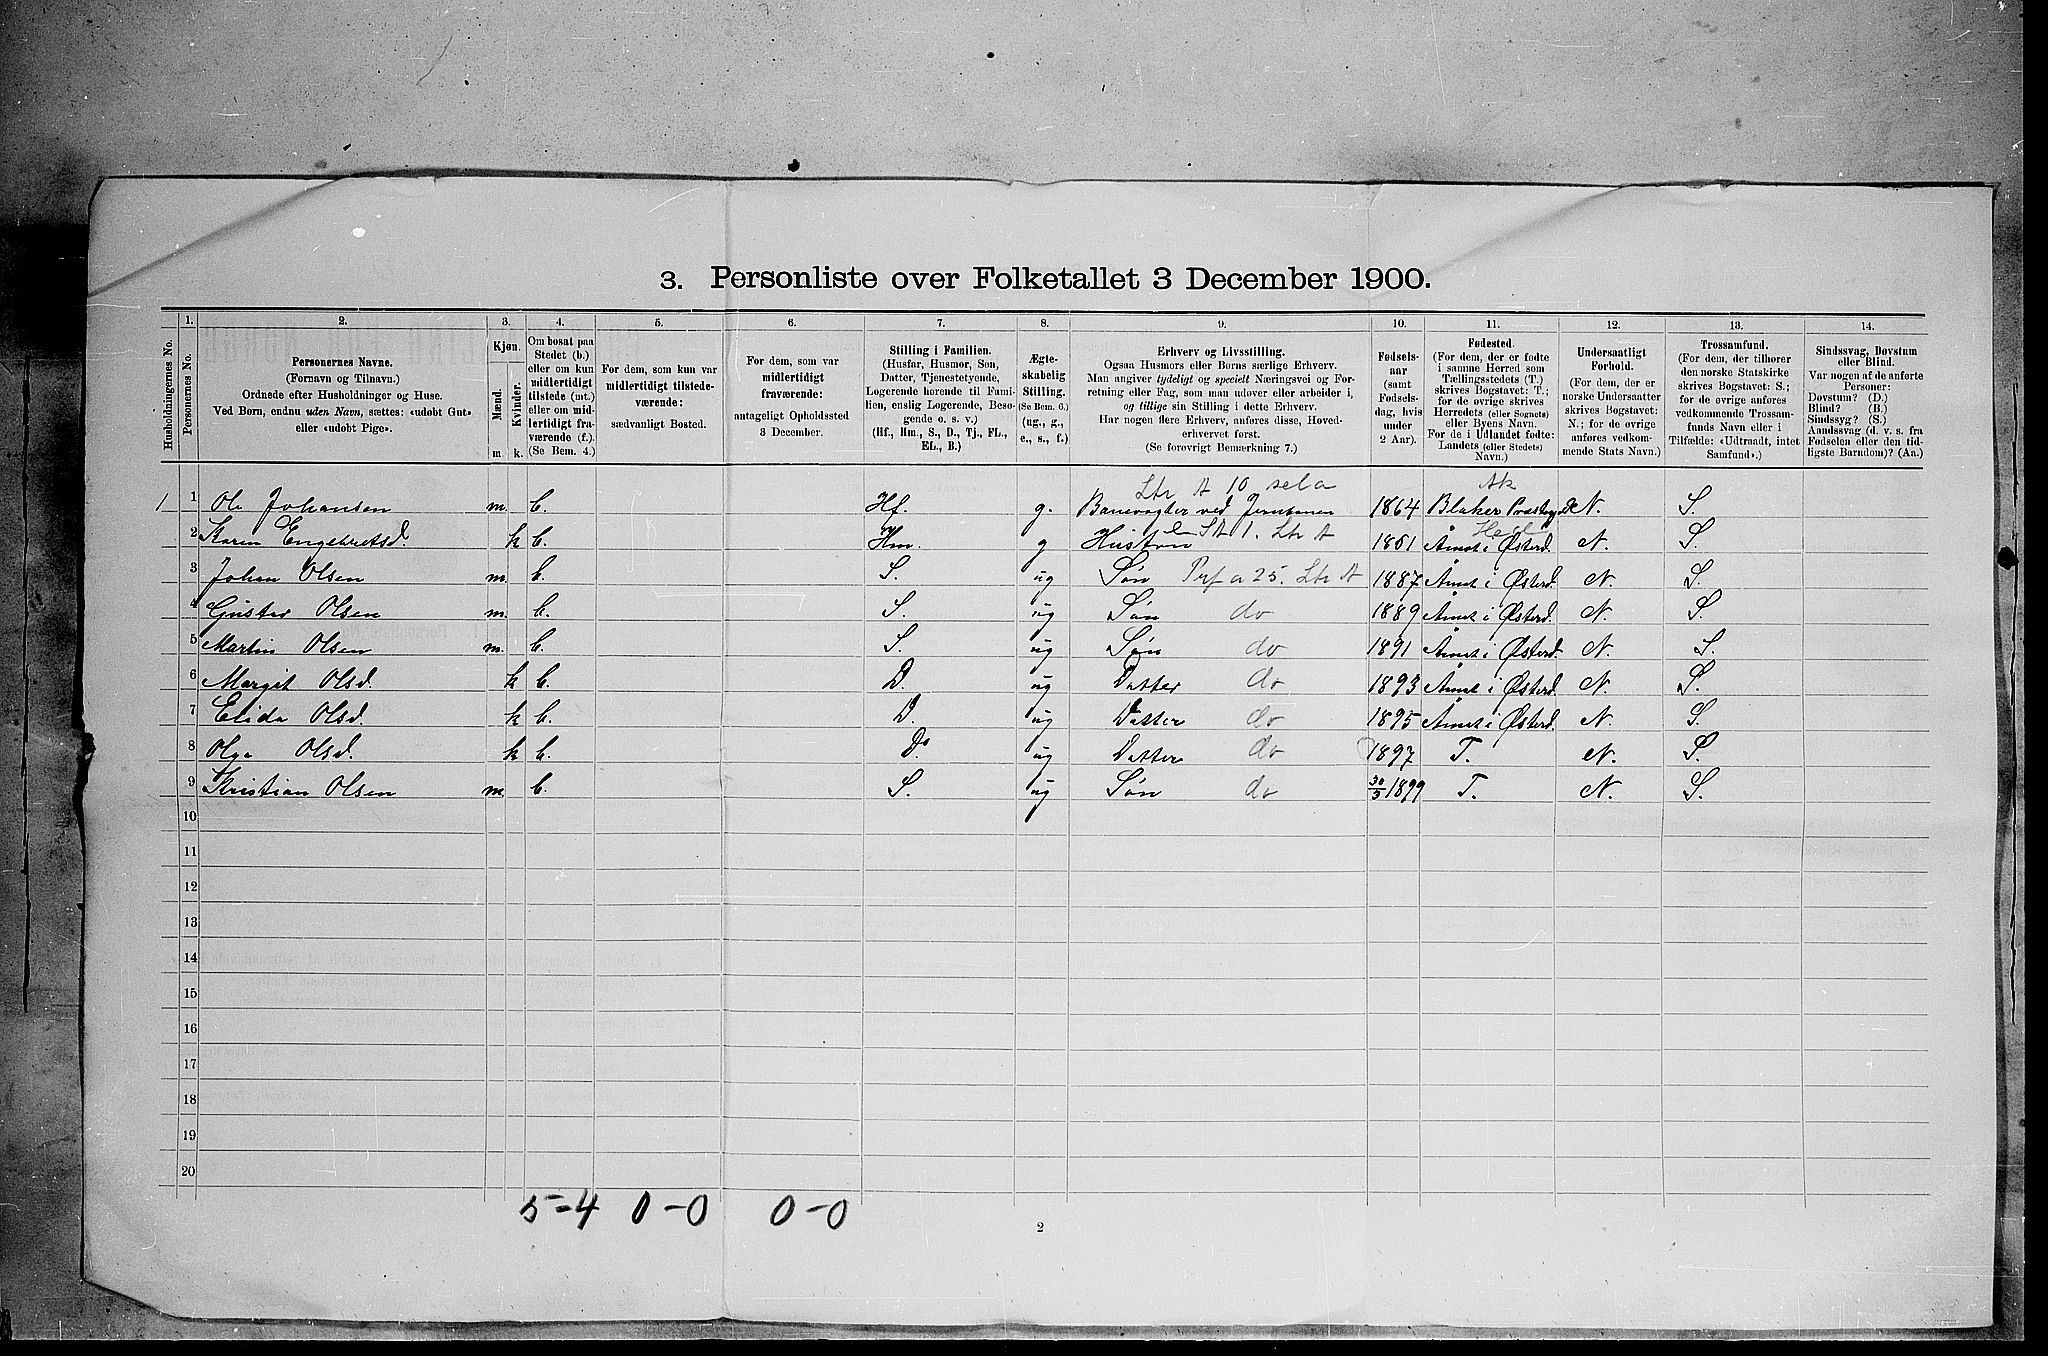 3. Personliste over Folketallet 3 December 1900.
1. 2. 3. 4. 5. 6. 7. 8. 9. 10. 11. 12. 13. 14.
Husholdningernes No.
Personernes No.
Personernes Navne.
(Fornavn og Tilnavn.)
Ordnede efter Husholdninger og Huse.
Ved Børn, endnu uden Navn, sættes: «udøbt Gut»
eller «udøbt Pige».
Kjøn.
Mænd.
Kvinder.
m. k.
Om bosat paa
Stedet (b.)
eller om kun
midlertidigt
tilstede (mt.)
eller om mid-
lertidigt fra-
værende (f.).
(Se Bem. 4.)
For dem, som kun var
midlertidigt tilstede-
værende:
sædvanligt Bosted.
For dem, som var
midlertidigt
fraværende:
antageligt Opholdssted
3 December.
Stilling i Familien.
(Husfar, Husmor, Søn,
Datter, Tjenestetyende,
Logerende hørende til Fami-
lien, enslig Logerende, Besø-
gende o. s. v.)
(Hf., Hm., S., D., Tj., FL.,
EL., B.)
Ægte-
skabelig
Stilling.
(Se Bem. 6.)
(ug., g.,
e., s., f.)
Erhverv og Livsstilling.
Ogsaa Husmors eller Børns særlige Erhverv.
Man angiver tydeligt og specielt Næringsvei og For-
retning eller Fag, som man udøver eller arbeider i,
og tillige sin Stilling i dette Erhverv.
Har nogen flere Erhverv, anføres disse, Hoved-
erhvervet først.
(Se forøvrigt Bemærkning 7.)
Fødsels-
aar
(samt
Fødsels-
dag, hvis
under
2 Aar).
Fødested.
(For dem, der er fødte
i samme Herred som
Tællingsstedets (T.)
skrives Bogstavet: T.;
for de øvrige skrives
Herredets (eller Sognets)
eller Byens Navn.
For de i Udlandet fødte:
Landets (eller Stedets)
Navn.)
Undersaatligt
Forhold.
(For dem, der er
norske Undersaatter
skrives Bogstavet:
N.; for de øvrige
anføres vedkom-
mende Stats Navn.)
Trossamfund.
(For dem, der tilhører
den norske Statskirke
skrives Bogstavet: S.;
for de øvrige anføres
vedkommende Trossam-
funds Navn eller i
Tilfælde: «Udtraadt, intet
Samfund».)
Sindssvag, Døvstum
eller Blind.
Var nogen af de anførte
Personer:
Døvstum? (D.)
Blind? (B.)
Sindssyg? (S.)
Aandssvag (d. v. s. fra
Fødselen eller den tid-
ligste Barndom)? (Aa.)
Ltr A 10 sela Ak
1 1 Ole Johansen m. b. Hf. g. Banevogter ved Jernbanen 1864 Blaker Præstegjeld N. S.
St 1. Ltr A Hed
2 Karen Engebretsd. k b. Hm. g Hustru 1861 Åmot i Østerd. N. S.
3 Johan Olsen m. b. S. ug Søn Prf a 25. Ltr A 1887 Åmot i Østerd. N. S.
4 Gustav Olsen m. b. S. ug Søn do 1889 Åmot i Østerd. N. S.
5 Martin Olsen m. b. S. ug Søn do 1891 Åmot i Østerd. N. S.
6 Margit Olsd. k b. D. ug Datter do 1893 Åmot i Østerd. N. S.
7 Elida Olsd. k b. D. ug Datter do 1895 Åmot i Østerd. N. S.
8 Olga Olsd. k b. D. ug Datter do 1897 T. N. S.
9 Kristian Olsen m. b. S. ug Søn do 30/3 1899 T. N. S.
10
11
12
13
14
15
16
17
18
19
20
5-4 0-0 0-0
2